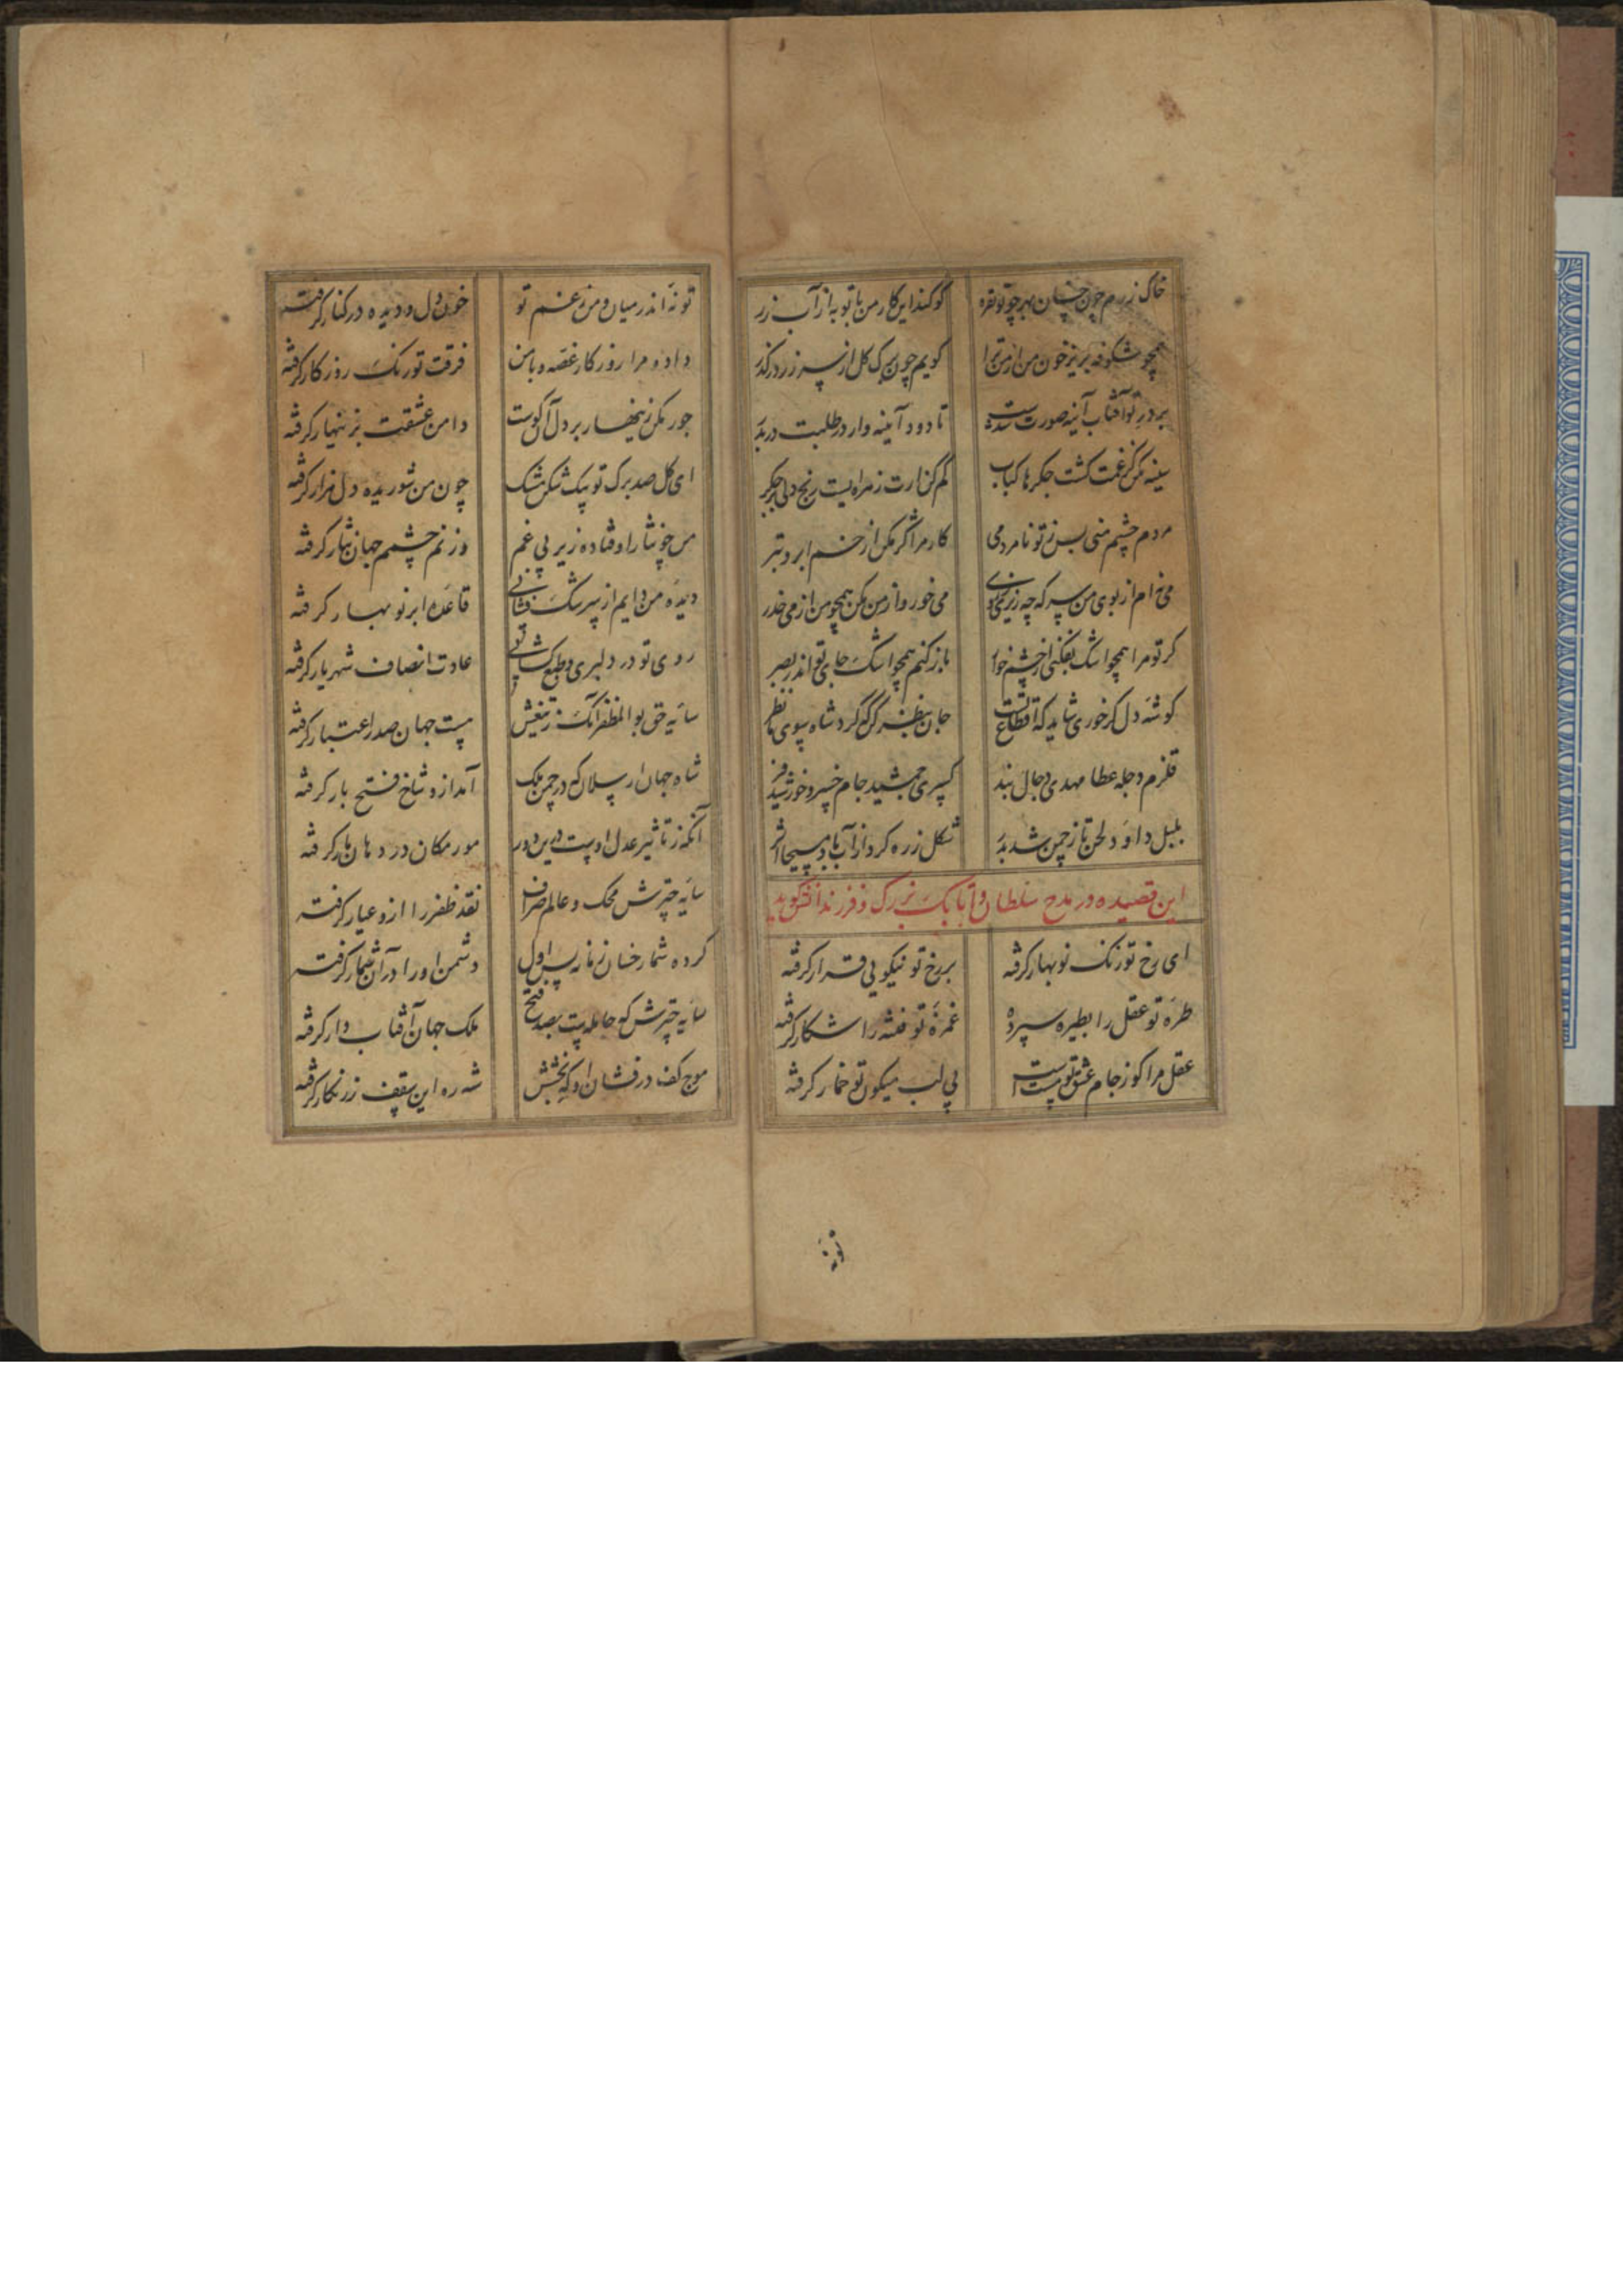 خاک زرم چون خسان بهر چو تو نقره کو کند این کار من با تو به از آب زر
همچو شکوفه بریز خون من از من ترا کویم چون برک کل از سر زر درکذر
بر در تو آفتاب آینه صورت شدست تا دود آینه وار در طلبت دربدر
سینه مکن کز غمت کشت جکرها کباب کم کن ازارت زمراه یست رنج دلی بر جکر
مردم چشم منی بس ز تو نامردمی کار مرا کر مکن از خم ابرو تبر
می خورم از بوی من سرکه چه ریزی می خور و از من مکن همچو من از می حذر
کر تو مرا همچو اشک بفکنی از چشم خوار باز کنم همچو اشک جای تو اندر بصر
کوشه دل کر خوری شاید که اقطاع تست جان بنظر کرکه کرد شاه بسوی ما نظر
قلزم دجله عطا مهدی دجال بند کسری جمشید جام خسرو خورشید فر
بلبل داود لحن تا ز چمن شد بدر شکل زره کرد از آب باد مسیحا اثر
این قصیده در مدح سلطان و اتابک بزرک و فرزندانش کوید
ای رخ تو رنک نوبهار کرفته بر رخ تو نیکویی قرار کرفته
طره تو عقل را بطیره سپرده غمزه تو فتنه را شکار کرفته
عقل مرا کو ز جام عشق تو مست است بی لب میکون تو خمار کرفته
تو نه
تو نه اندر میان و من ز غم تو خون دل و دیده در کنار کرفته
داده مرا روزکار غصه و با من فرقت تو رنک روزکار کرفته
جور مکن زینهار بر دل آن کوست دامن عشقت بزینهار کرفته
ای کل صد برک تو بیک شکن مشک چون من شوریده دل هزار کرفته
من چو نثار اوفتاده زیر پی غم وز نم چشمم جهان نثار کرفته
دیده من دایم از سرشک فشانی قاعده ابر نوبهار کرفته
روی تو در دلبری و طبع کشایی عادت انصاف شهریار کرفته
سایه حق بوالمظفر آنک ز تیغش هست جهان صد اعتبار کرفته
شاه جهان ارسلان که در چمن ملک آمد ازو شاخ فتح بار کرفته
آنکه ز تاثیر عدل اوست درین دور مور مکان در دهان مار کرفته
سایه چترش محک و عالم صراف نقد ظفر را ازو عیار کرفته
کرده شمار خسان زمانه پس اول دشمن او را در آن شمار کرفته
سایه چترش که حامله ست بصد فتح ملک جهان آفتاب وار کرفته
موج کف درفشان او که بخشش شه ره این سقف زرنکار کرفته